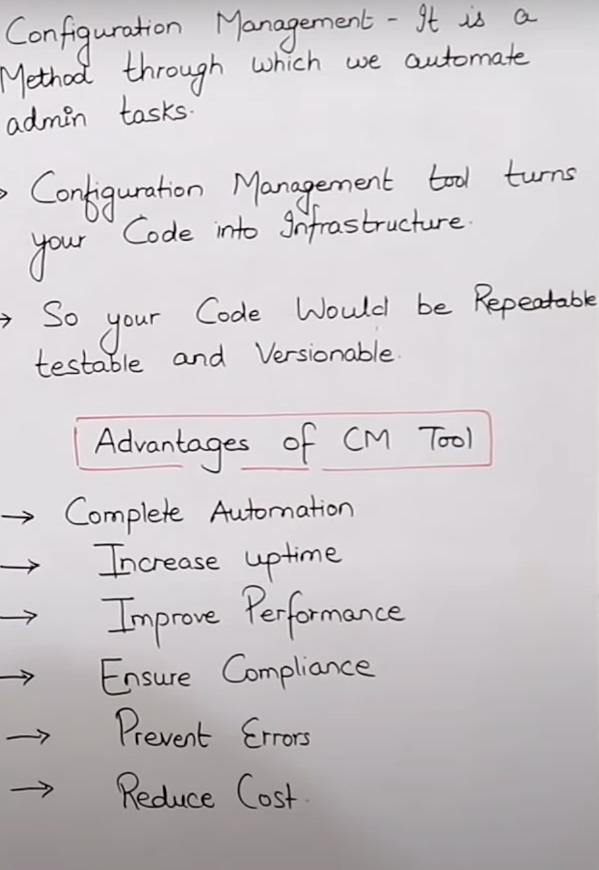 Configuration Management - It is a
Method through which we automate
admin tasks.
→ Configuration Management tool turns
your Code into Infrastructure.
→ So your Code Would be Repeatable
testable and Versionable.
Advantages of CM Tool
→ Complete Automation
→ Increase uptime
→ Improve Performance
→ Ensure Compliance
→ Prevent Errors
→ Reduce Cost.